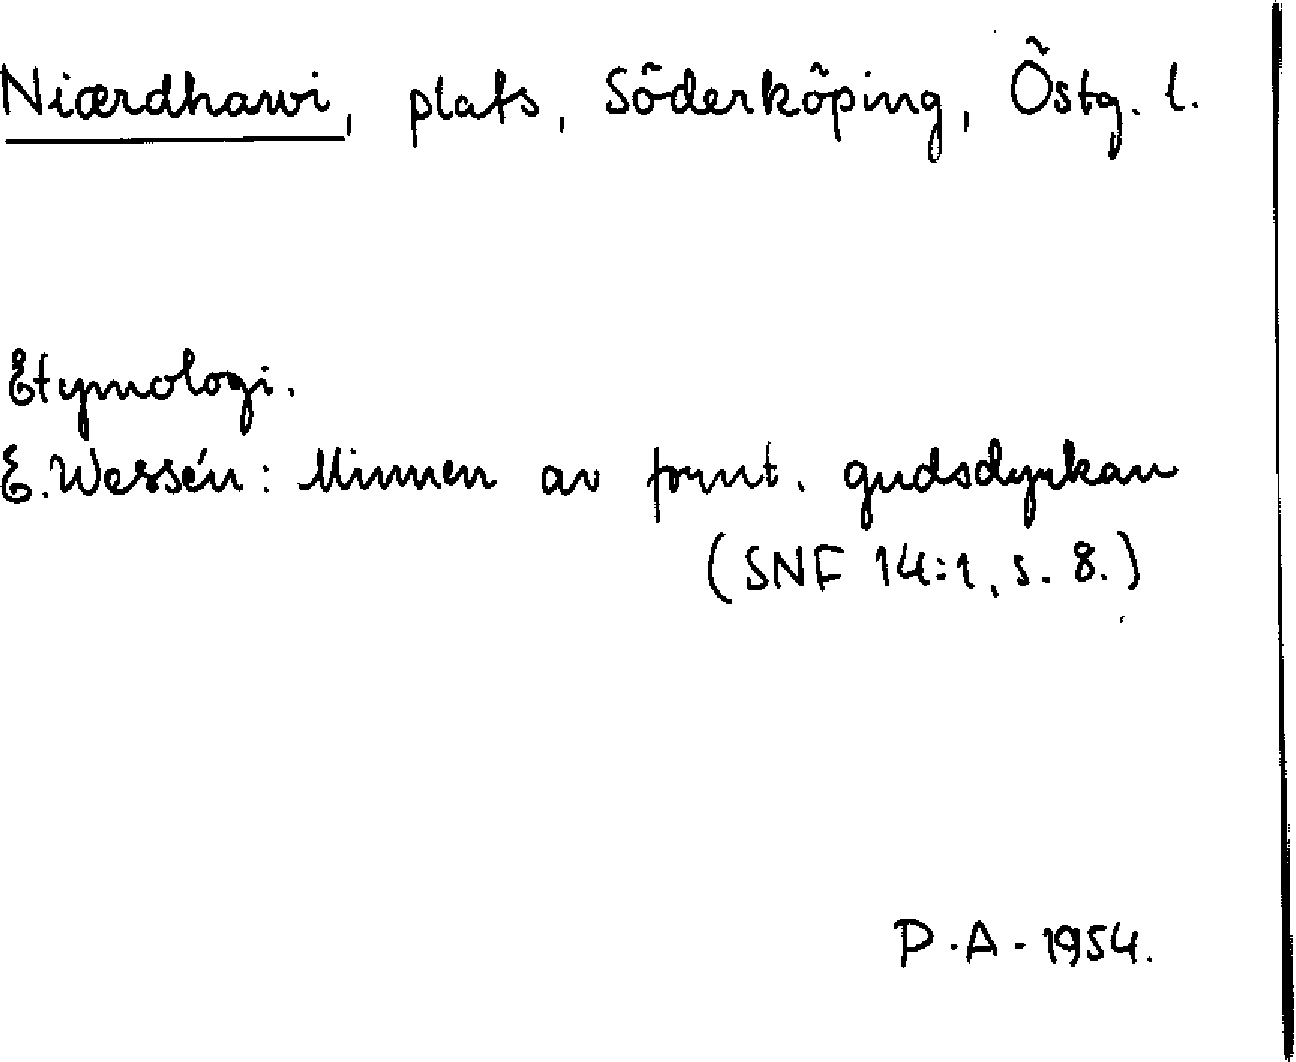 Niærdhawi, plats, Söderköping, Östg. l.
Etymologi.
E. Wessén: Minnen av fornt. gudsdyrkan
(SNF 14:1, s. 8.)
P.A. 1954.